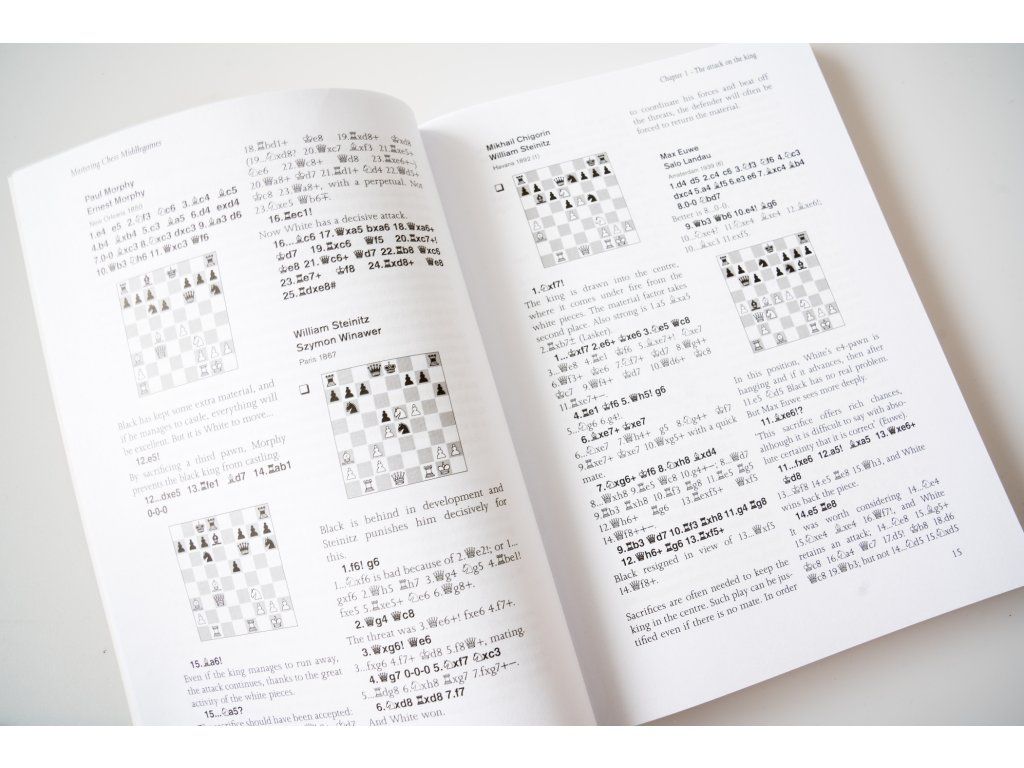 Mastering Chess Middlegames
Paul Morphy
Ernest Morphy
New Orleans 1850
1.e4 e5 2.♘f3 ♘c6 3.♗c4 ♗c5
4.b4 ♗xb4 5.c3 ♗a5 6.d4 exd4
7.0-0 ♗xc3 8.♘xc3 dxc3 9.♗a3 d6
10.♕b3 ♘h6 11.♕xc3 ♕f6
Black has kept some extra material, and
if he manages to castle, everything will
be excellent. But it is White to move...
12.e5!
By sacrificing a third pawn, Morphy
prevents the black king from castling
12...dxe5 13.♖fe1 ♗d7 14.♖ab1
0-0-0
15.♗a6!
Even if the king manages to run away,
the attack continues, thanks to the great
activity of the white pieces.
15...♘a5?
The sacrifice should have been accepted:
18.♖bd1+ ♔e8 19.♖xd8+ ♔xd8
(19...♘xd8? 20.♕xc7 ♗xf3 21.♖xe5+
♘e6 22.♕c8+ ♕d8 23.♖xe6+–)
20.♕a8+ ♔d7 21.♖d1+ ♘d4 22.♕d5+
♔c8 23.♕a8+, with a perpetual. Not
23.♘xe5 ♕b6∓.
16.♖ec1!
Now White has a decisive attack.
16...♗c6 17.♕xa5 bxa6 18.♕xa6+
♔d7 19.♖xc6 ♕f5 20.♖xc7+!
♔e8 21.♕c6+ ♕d7 22.♖b8 ♕xc6
23.♖e7+ ♔f8 24.♖xd8+ ♕e8
25.♖dxe8#
William Steinitz
Szymon Winawer
Paris 1867
Black is behind in development and
Steinitz punishes him decisively for
this.
1.f6! g6
1...♘xf6 is bad because of 2.♕e2!; or 1...
gxf6 2.♕h5 ♖h7 3.♕g4 ♘g5 4.♖bel!
fxe5 5.♖xe5+ ♘e6 6.♕g8+.
2.♕g4 ♕c8
The threat was 3.♕e6+! fxe6 4.f7+.
3.♕xg6! ♕e6
3...fxg6 4.f7+ ♔d8 5.f8♕+, mating.
4.♕g7 0-0-0 5.♘xf7 ♘xc3
5...♖dg8 6.♘xh8 ♖xg7 7.fxg7+–.
6.♘xd8 ♖xd8 7.f7
And White won.
Chapter 1 - The attack on the king
Mikhail Chigorin
William Steinitz
Havana 1892 (1)
1.♘xf7!
The king is drawn into the centre,
where it comes under fire from the
white pieces. The material factor takes
second place. Also strong is 1.a5 ♗xa5
2.♖xb7± (Lasker).
1...♔xf7 2.e6+ ♔xe6 3.♘e5 ♕c8
3...♕e8 4.♖e1 ♔f6 5.♗e7+! ♘xe7
6.♕f3+ ♔e6 7.♘f7+ ♔d7 8.♕g4+
♔c7 9.♕f4+ ♔d7 10.♕d6+ ♔c8
11.♖xe7+–.
4.♖e1 ♔f6 5.♕h5! g6
5...♘g6 6.g4!.
6.♗xe7+ ♔xe7
6...♘xe7 7.♕h4+ g5 8.♘g4+ ♔f7
9.♖xe7+ ♔xe7 10.♕xg5+ with a quick
mate.
7.♘xg6+ ♔f6 8.♘xh8 ♗xd4
8...♕xh8 9.♖e5 ♕c8 10.g4+–; 8...♕d7
9.♖b3 ♖xh8 10.♖f3 ♖g8 11.♖e5 ♖g5
12.♕h6+ ♖g6 13.♖exf5+ ♕xf5
14.♕f8++–.
9.♖b3 ♕d7 10.♖f3 ♖xh8 11.g4 ♖g8
12.♕h6+ ♖g6 13.♖xf5+
Black resigned in view of 13...♕xf5
14.♕f8+.
Sacrifices are often needed to keep the
king in the centre. Such play can be jus-
tified even if there is no mate. In order
to coordinate his forces and beat off
the threats, the defender will often be
forced to return the material.
Max Euwe
Salo Landau
Amsterdam 1939 (6)
1.d4 d5 2.c4 c6 3.♘f3 ♘f6 4.♘c3
dxc4 5.a4 ♗f5 6.e3 e6 7.♗xc4 ♗b4
8.0-0 ♘bd7
Better is 8...0-0.
9.♕b3 ♕b6 10.e4! ♗g6
10...♘xe4? 11.♘xe4 ♗xe4 12.♗xe6!;
10...♗xc3 11.exf5.
In this position, White's e4-pawn is
hanging and if it advances, then after
11.e5 ♘d5 Black has no real problem.
But Max Euwe sees more deeply.
11.♗xe6!?
'This sacrifice offers rich chances,
although it is difficult to say with abso-
lute certainty that it is correct' (Euwe).
11...fxe6 12.a5! ♗xa5 13.♕xe6+
♔d8
13...♔f8 14.e5 ♖e8 15.♕h3, and White
wins back the piece.
14.e5 ♖e8
It was worth considering 14...♘e4
15.♘xe4 ♗xe4 16.♕f7!, and White
retains an attack; 14...♘e8 15.♗g5+
♔c8 16.♘a4 ♕c7 17.d5! ♔b8 18.d6
♕c8 19.♕b3; but not 14...♘d5 15.♘xd5
15